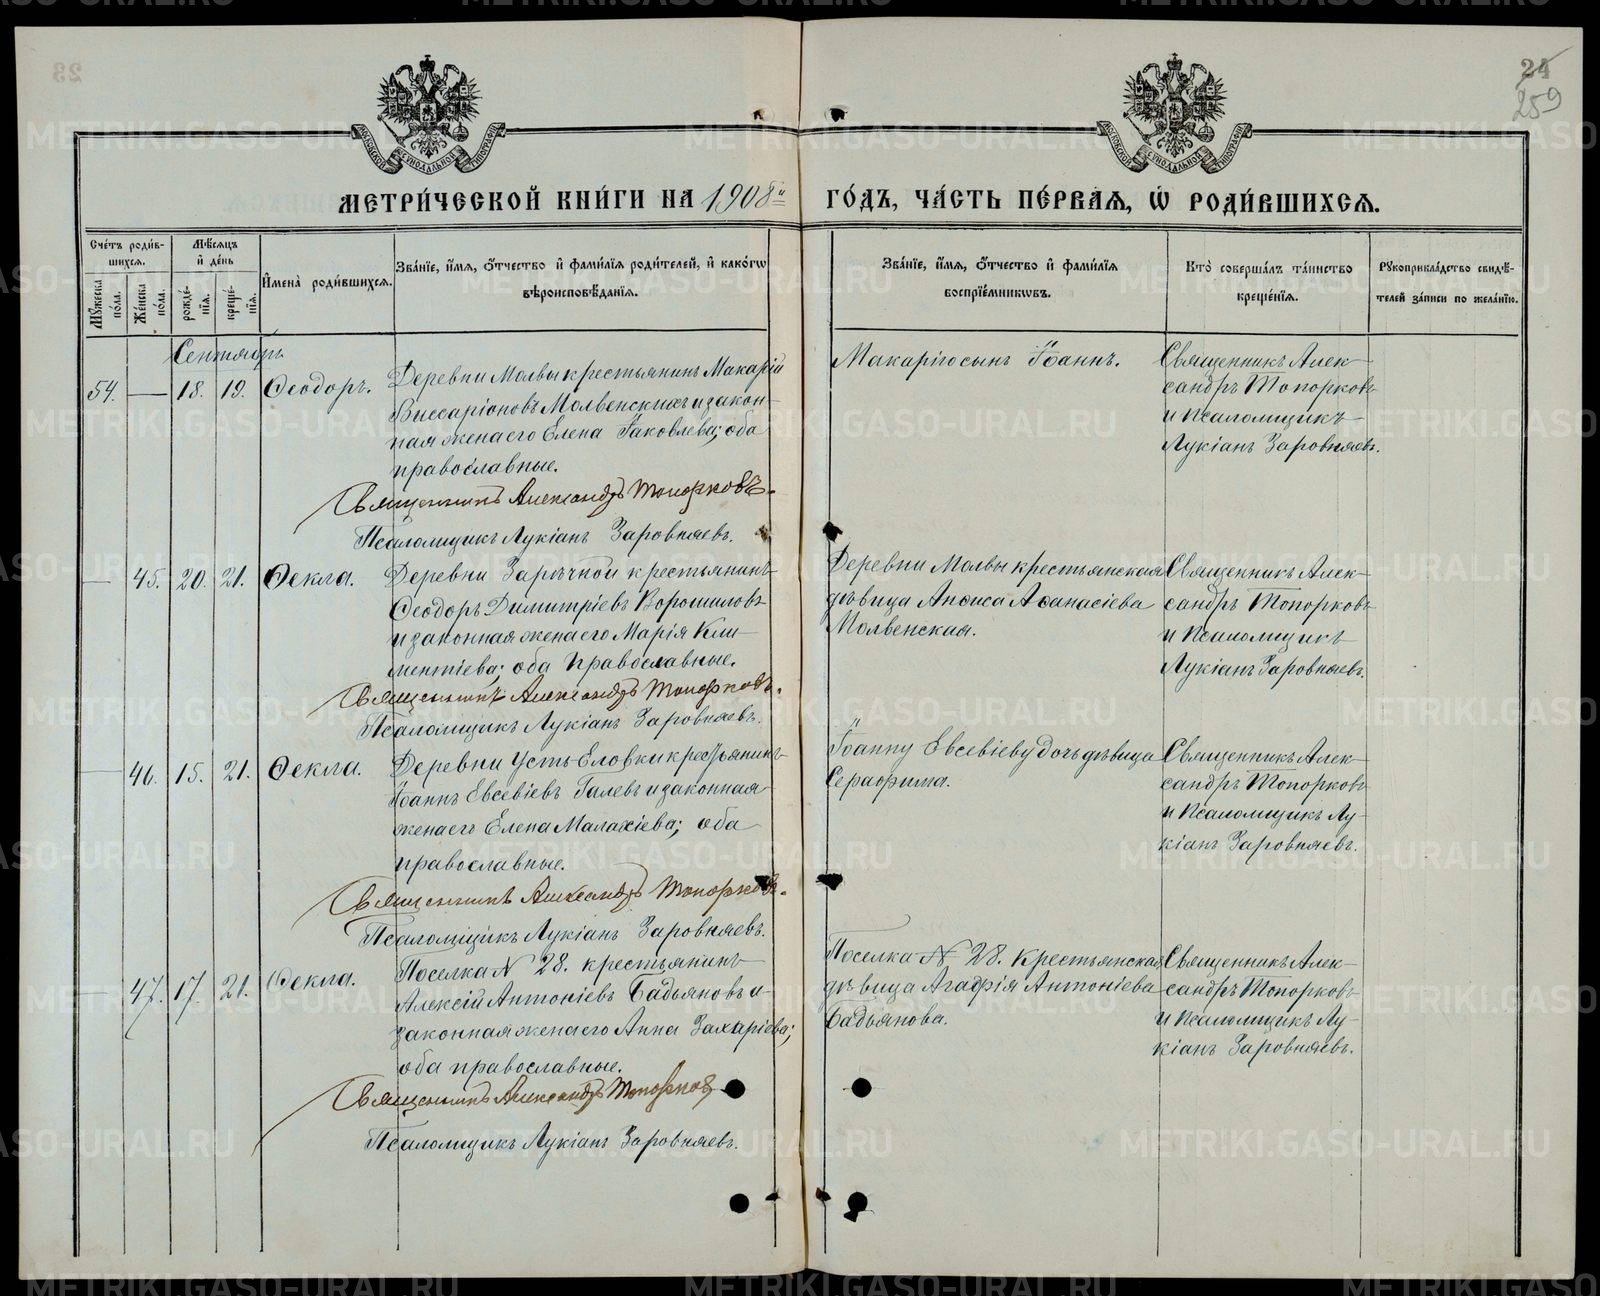 23
24
259
МЕТРИ́ЧЕСКОЙ КНИ́ГИ НА 1908й
ГО́ДЪ, ЧА́СТЬ ПЕ́РВАЯ, Ѡ҆ РОДИ́ВШИХСѦ.
Сче́тъ роди́в-
шихсѧ.
Мꙋ́жеска
по́ла.
Же́нска
по́ла.
Мѣ́сѧцъ
и҆ де́нь
рожде́-
нїѧ.
креще́-
нїѧ.
И҆мена̀ роди́вшихсѧ.
Зва́нїе, и҆́мѧ, ѻ҆́тчество и҆ фами́лїѧ роди́телей, и҆ како́гѡ
вѣроисповѣ́данїѧ.
Зва́нїе, и҆́мѧ, ѻ҆́тчество и҆ фами́лїѧ
воспрїе́мникѡвъ.
Кто̀ соверша́лъ та́инство
креще́нїѧ.
Рꙋкоприкла́дство свидѣ́-
телей за́писи по жела́нїю.
Сентябрь
54. — 18. 19. Ѳеодоръ.
Деревни Молвы крестьянинъ Макарій
Виссаріоновъ Молвенскихъ и закон-
ная жена его Елена Іаковлева; оба
православные.
Священникъ Александръ Топорковъ.
Псаломщикъ Лукіанъ Заровняевъ.
Макарія сынъ Іоаннъ.
Священникъ Алек-
сандръ Топорковъ
и Псаломщикъ
Лукіанъ Заровняевъ.
— 45. 20. 21. Ѳекла.
Деревни Зарѣчной крестьянинъ
Ѳеодоръ Димитріевъ Ворошиловъ
и законная жена его Марія Кли-
ментіева; оба православные.
Священникъ Александръ Топорковъ.
Псаломщикъ Лукіанъ Заровняевъ.
Деревни Молвы крестьянская
дѣвица Анѳиса Аѳанасіева
Молвенская.
Священникъ Алек-
сандръ Топорковъ
и Псаломщикъ
Лукіанъ Заровняевъ.
— 46. 15. 21. Ѳекла.
Деревни Усть-Еловки крестьянинъ
Іоаннъ Евсевіевъ Галевъ и законная
жена его Елена Малахіева; оба
православные.
Священникъ Александръ Топорковъ.
Псаломщикъ Лукіанъ Заровняевъ.
Іоанну Евсевіеву дочь дѣвица
Серафима.
Священникъ Алек-
сандръ Топорковъ
и Псаломщикъ Лу-
кіанъ Заровняевъ.
— 47. 17. 21. Ѳекла.
Поселка N 28. крестьянинъ
Алексій Антоніевъ Бадьяновъ и
законная жена его Анна Захаріева;
оба православные.
Священникъ Александръ Топорковъ
Псаломщикъ Лукіанъ Заровняевъ.
Поселка N 28. крестьянская
дѣвица Агафія Антоніева
Бадьянова.
Священникъ Алек-
сандръ Топорковъ
и Псаломщикъ Лу-
кіанъ Заровняевъ.
METRIKI.GASO-URAL.RU